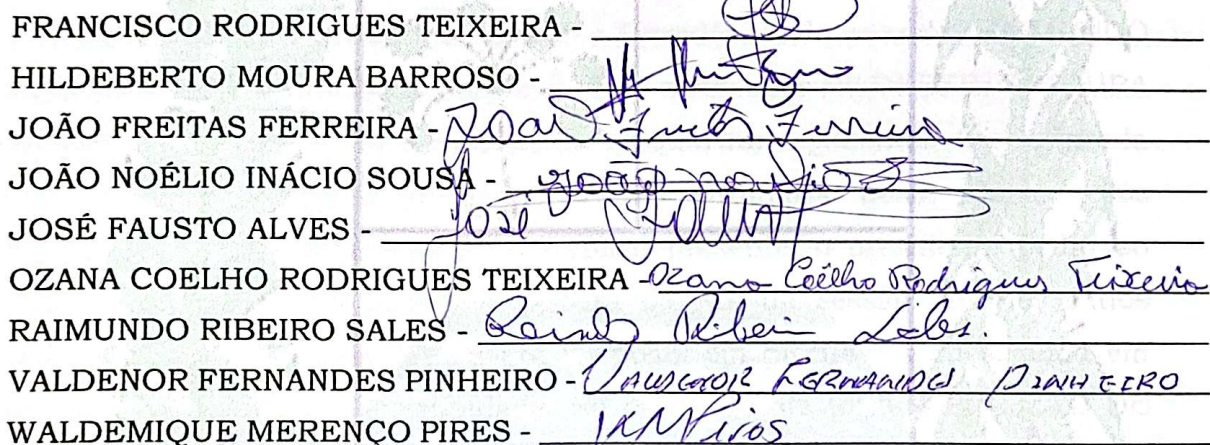 FRANCISCO RODRIGUES TEIXEIRA -
HILDEBERTO MOURA BARROSO -
JOÃO FREITAS FERREIRA - João Freitas Ferreira
JOÃO NOÉLIO INÁCIO SOUSA - João Noélio
JOSÉ FAUSTO ALVES - José
OZANA COELHO RODRIGUES TEIXEIRA - Ozana Coêlho Rodrigues Teixeira
RAIMUNDO RIBEIRO SALES - Raimundo Ribeiro Sales.
VALDENOR FERNANDES PINHEIRO - VALDENOR FERNANDES PINHEIRO
WALDEMIQUE MERENÇO PIRES - WMPires